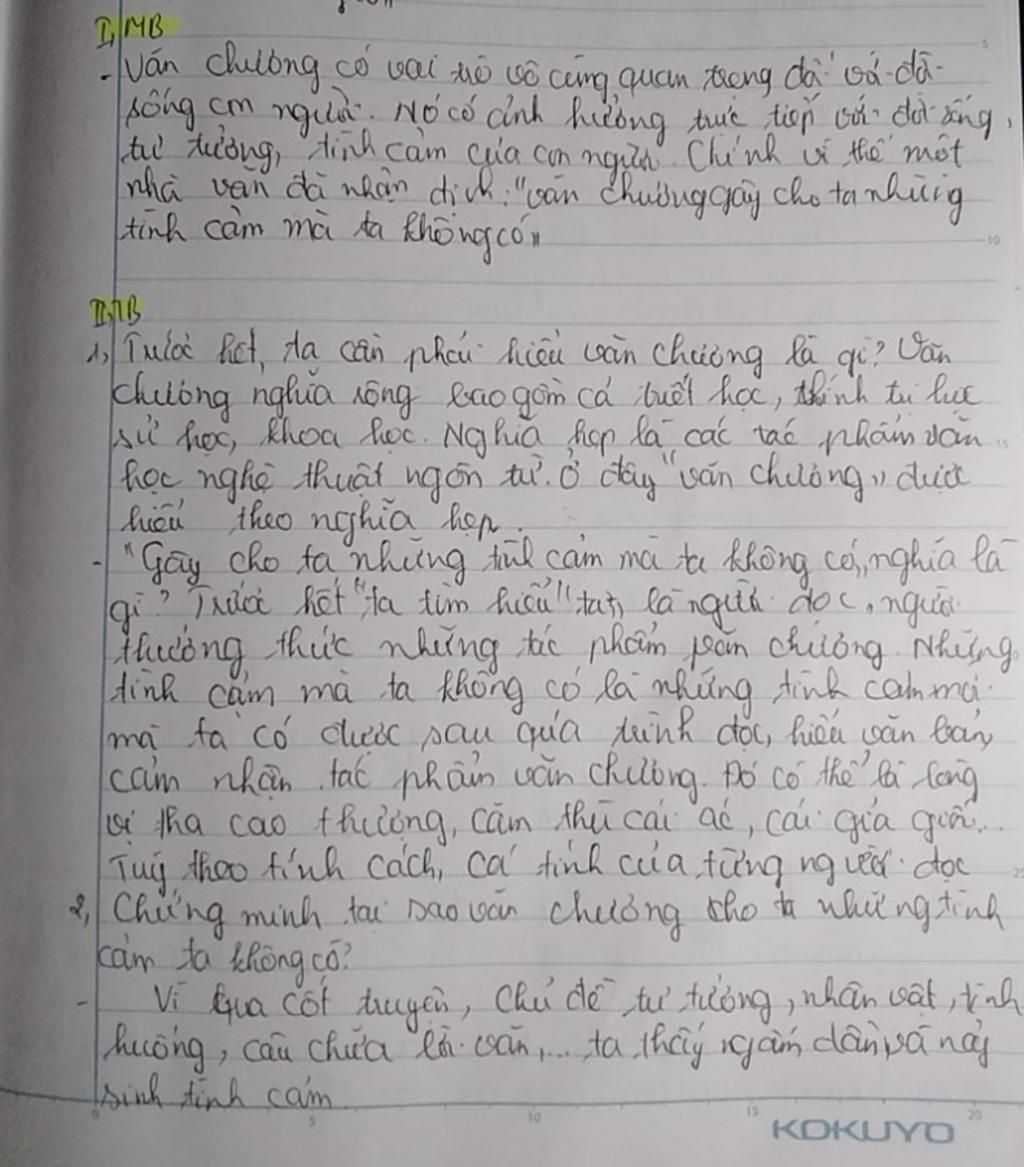 I, MB
- Văn chương có vai trò vô cùng quan trọng đối với đời
sống con người. Nó có ảnh hưởng trực tiếp với đời sống,
tư tưởng, tình cảm của con người. Chính vì thế một
nhà văn đã nhận định: "văn chương gây cho ta những
tình cảm mà ta không có"
II, TB
1, Trước hết, ta cần phải hiểu văn chương là gì? Văn
chương nghĩa rộng bao gồm cả triết học, chính trị học
sử học, khoa học. Nghĩa hẹp là các tác phẩm văn
học nghệ thuật ngôn từ. Ở đây "văn chương" được
hiểu theo nghĩa hẹp.
- "Gây cho ta những tình cảm mà ta không có" nghĩa là
gì? Trước hết "ta tìm hiểu "ta", là người đọc, người
thưởng thức những tác phẩm văn chương. Những
tình cảm mà ta không có là những tình cảm mới
mà ta có được sau quá trình đọc, hiểu văn bản,
cảm nhận tác phẩm văn chương. Đó có thể là lòng
vị tha cao thượng, căm thù cái ác, cái giả giối...
Tuỳ theo tính cách, cá tính của từng người đọc
2, Chứng minh tại sao văn chương cho ta những tình
cảm ta không có?
- Vì qua cốt truyện, chủ đề tư tưởng, nhân vật, tình
huống, câu chữ lời văn,... ta thấy ngấm dần và nảy
sinh tình cảm.
5 10 15 20
KOKUYO